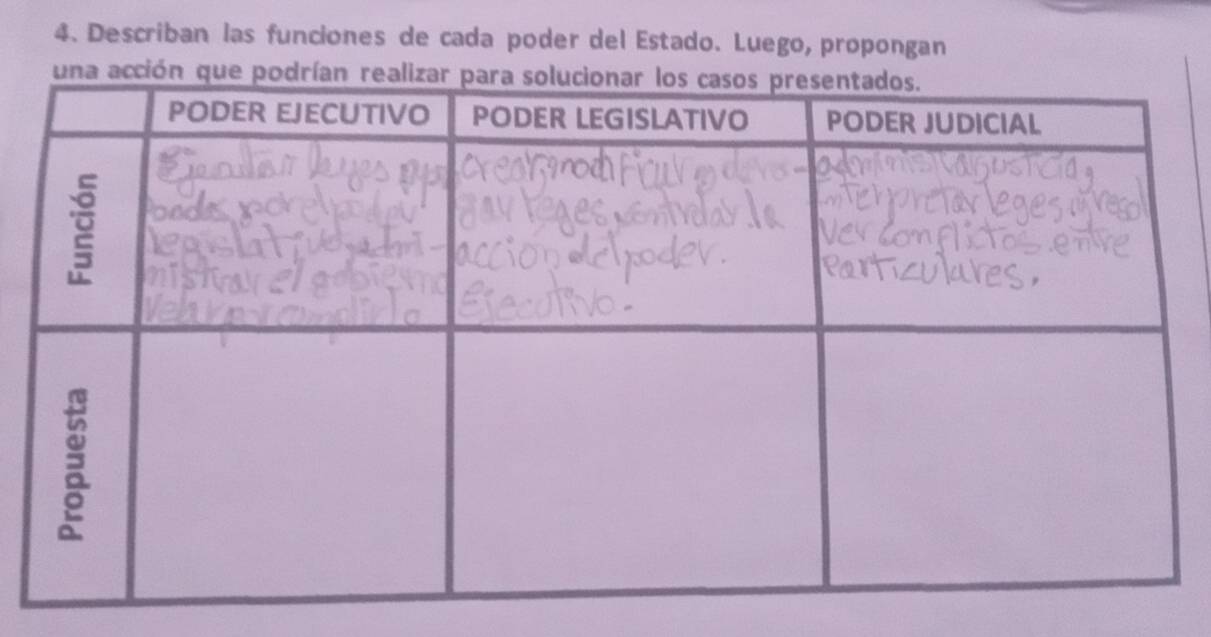 4. Describan las funciones de cada poder del Estado. Luego, propongan
una acción que podrían realizar para solucionar los casos presentados.
PODER EJECUTIVO PODER LEGISLATIVO PODER JUDICIAL
Función
Ejecutar leyes
por el poder
legislativo, admi-
nistrar el gobierno
Velar por cumplirla
crear, modificar o dero-
gar leges, controlar la
accion del poder.
Ejecutivo.
administrar justicia,
interpretar leges y resol
ver conflictos entre
Particulares.
Propuesta